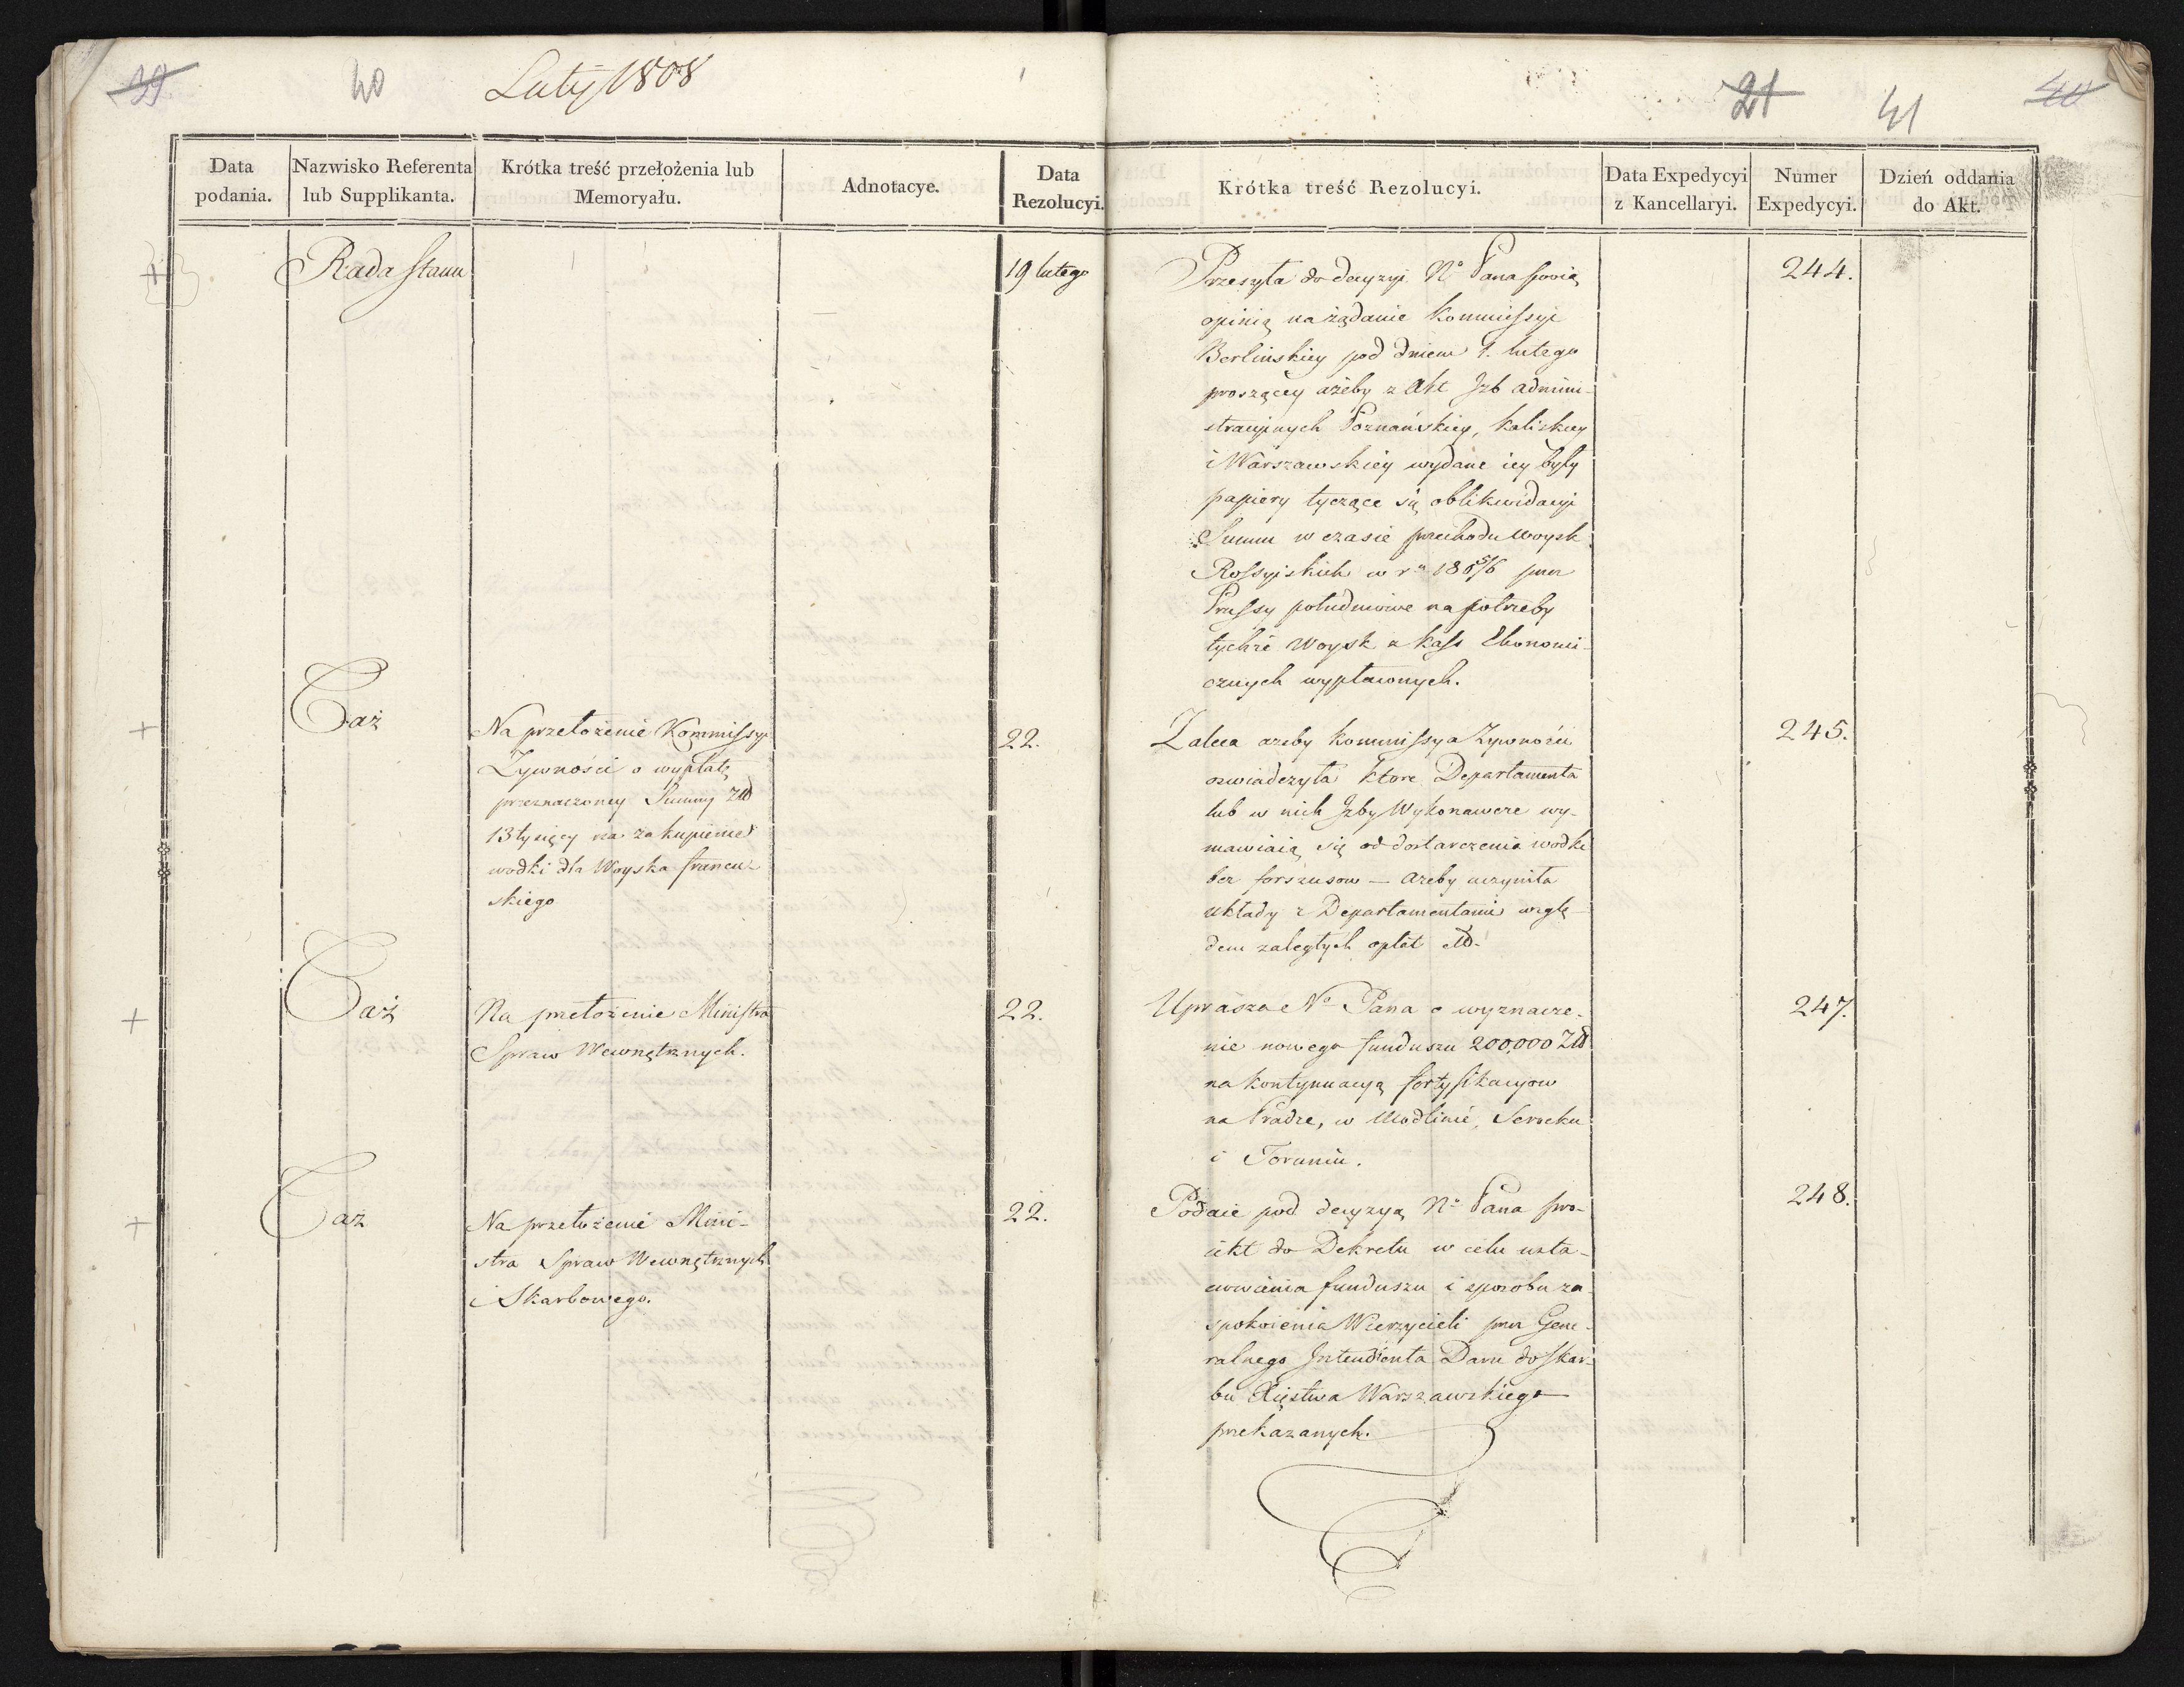 39
40
Luty 1808
21
41
40
Data podania.
Nazwisko Referenta lub Supplikanta.
Krótka treść przełożenia lub Memoryału.
Adnotacye.
Data Rezolucyi.
Krótka treść Rezolucyi.
Data Expedycyi z Kancellaryi.
Numer Expedycyi.
Dzień oddania do Akt.
Rada Stanu
19 lutego
Przesyła do decyzyi Nº Pana swoią
opinią na żądanie Kommissyi
Berlińskiey pod dniem 1. lutego
proszącey ażeby z Akt Jzb admini-
stracyinych Poznańskiey, Kaliskiey
i Warszawskiey wydane iey były
papiery tyczące się oblikwidacyi
Summ w czasie przechodu Woysk
Rossyiskich w rº 1805/6 przez
Prussy południowe na potrzeby
tychże Woysk z Kass Ekonomi-
cznych wypłaconych.
244.
Taż
Na przełożenie Kommissyi
Zywności o wypłatę
przeznaczoney Summy Złł
13 tysięcy na zakupienie
wodki dla Woyska francu-
skiego
22.
Zaleca azeby Kommissya Zywności
oswiadczyła ktore Departamenta
lub w nich Jzby Wykonawcze wy-
mawiaią się od dostarczenia wodki
bez forszusow — Azeby uczyniła
układy z Departamentami wzglę-
dem zaległych opłat etd.
245.
Taż
Na przełożenie Ministra
Spraw Wewnętrznych.
22.
Uprasza Nº Pana o wyznacze-
nie nowego funduszu 200,000 Złł
na kontynuacyą fortyfikacyow
na Pradze, w Modlinie, Serocku
i Toruniu.
247.
Taż
Na przełożenie Mini-
stra Spraw Wewnętrznych
i Skarbowego.
22.
Podaie pod decyzyą Nº Pana pro-
iekt do Dekretu w celu usta-
nowienia funduszu i sposobu za
spokoienia Wierzycieli przez Gene-
ralnego Jntendenta Daru do Skar-
bu Xięstwa Warszawskiego
przekazanych.
248.